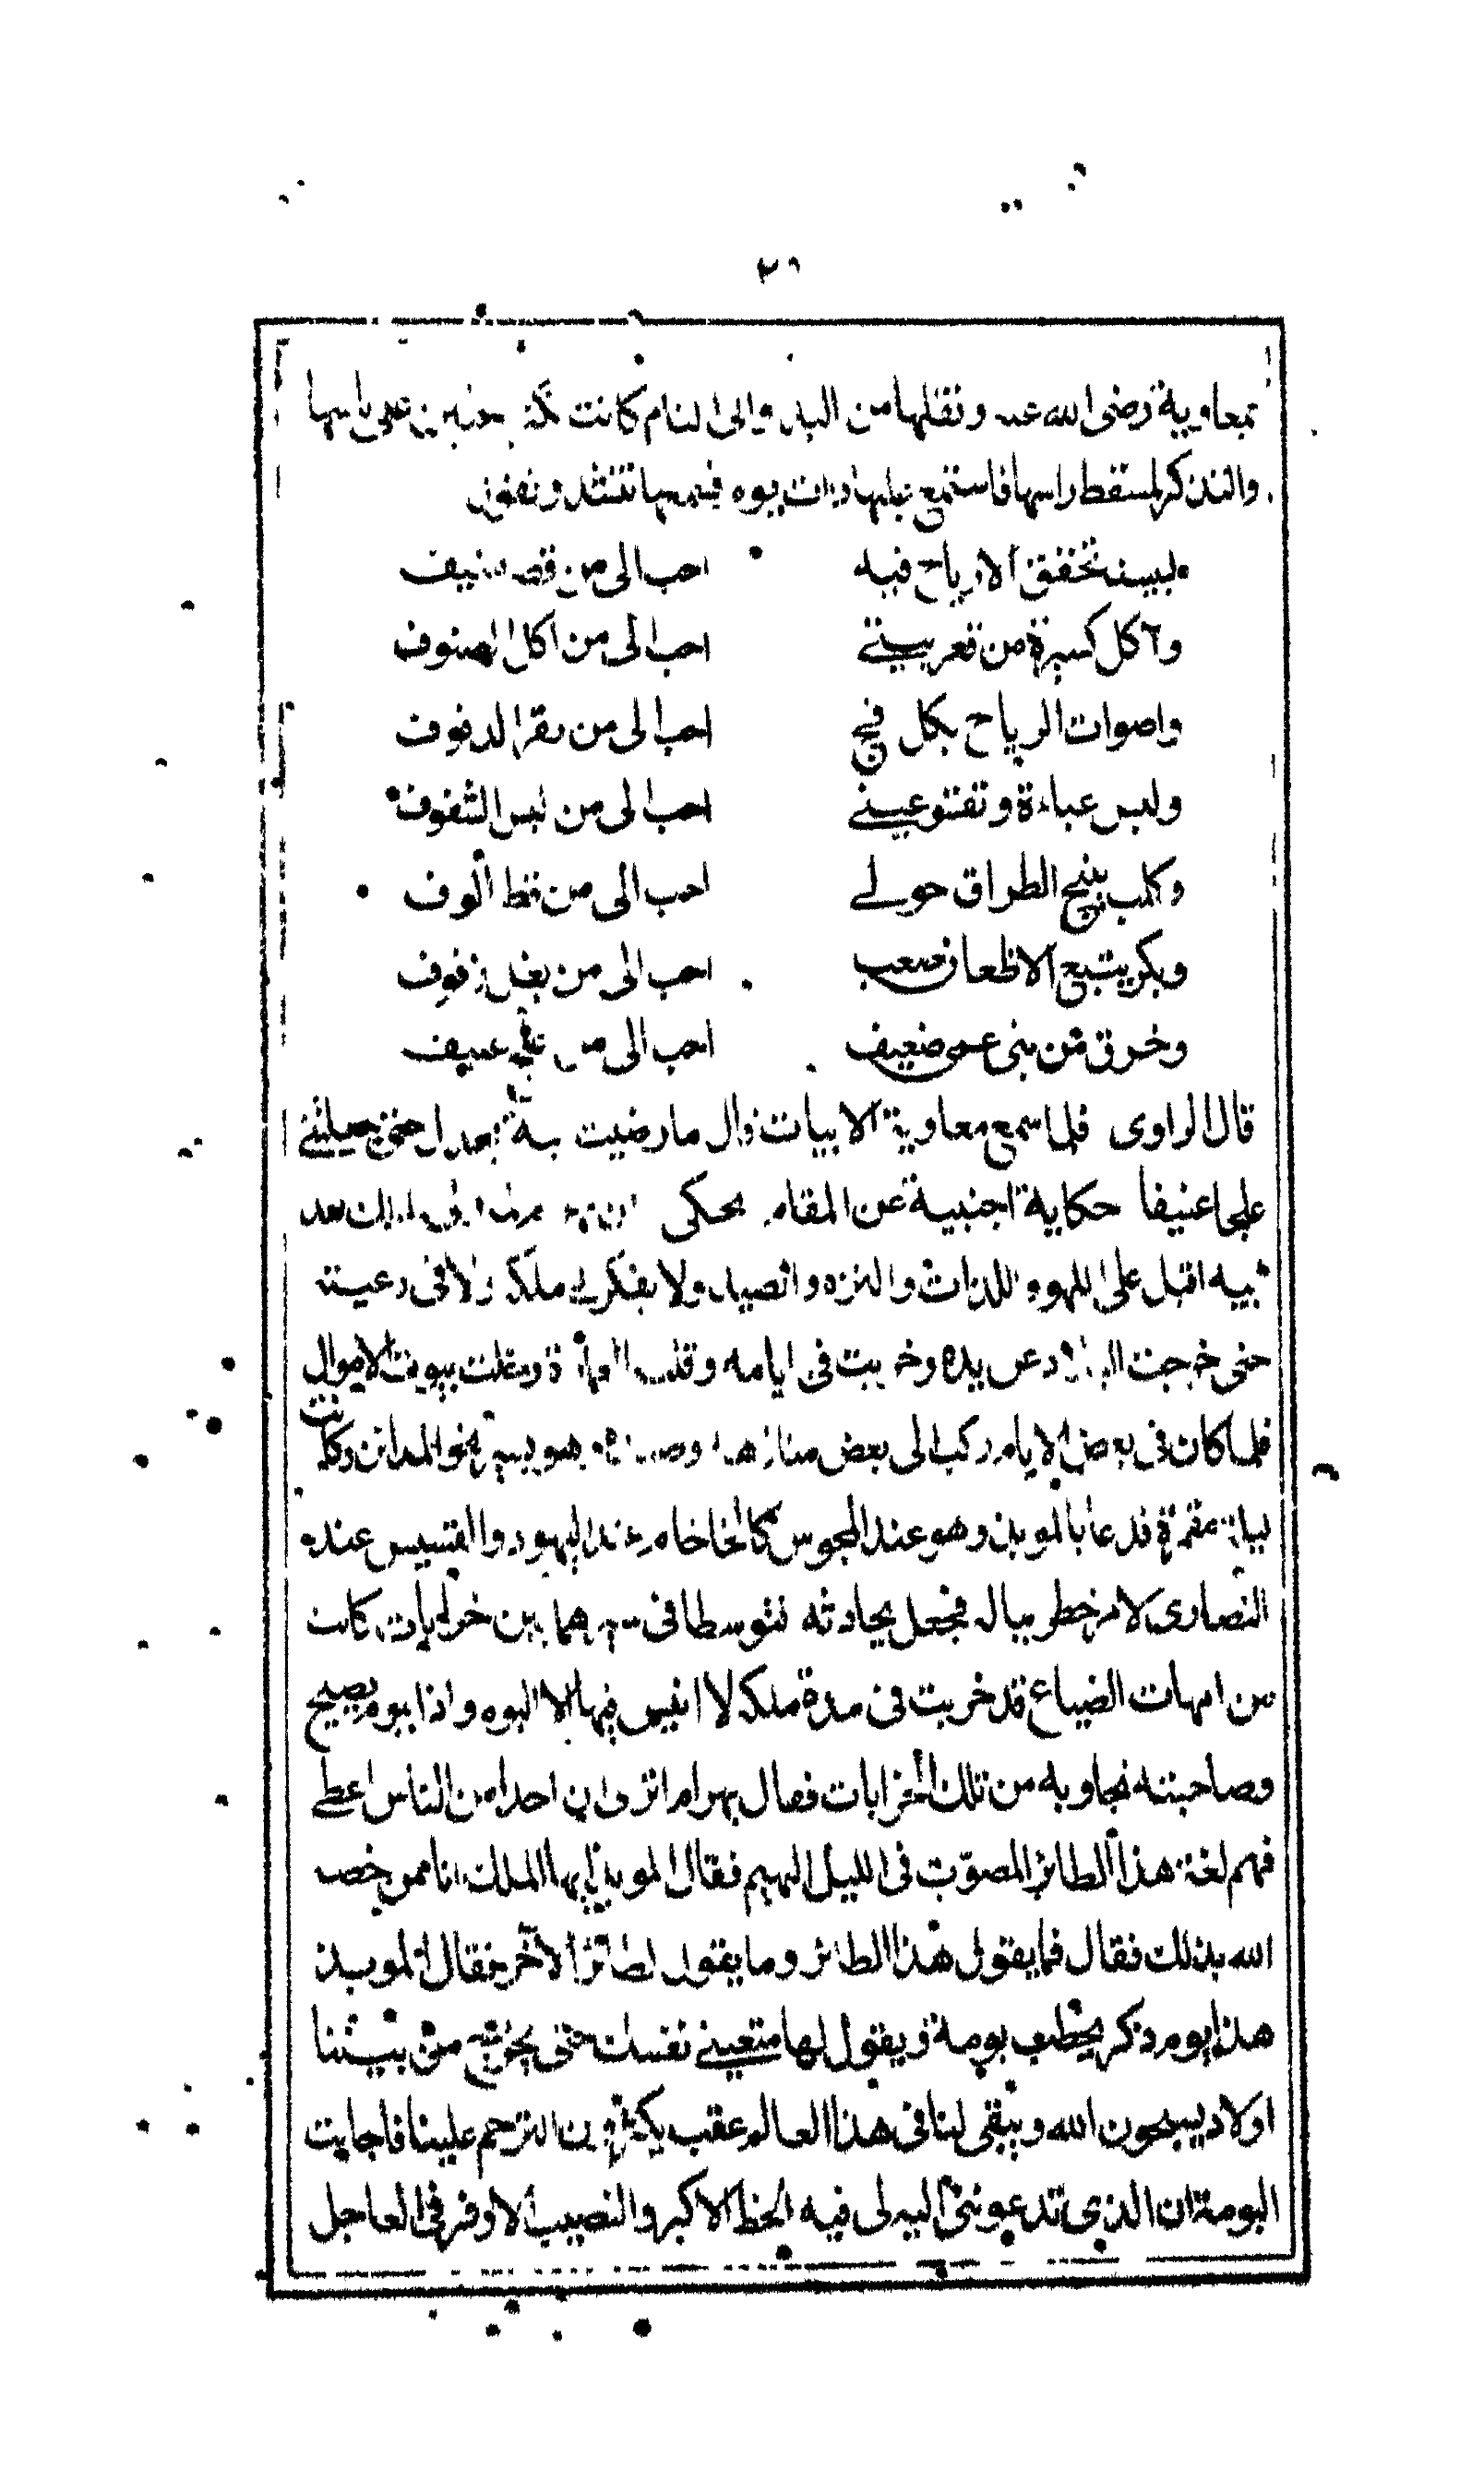 ٢٦
بمعاوية رضى الله عنه ونقلها من البدو الى الشام كانت تكثر الحنين على ناسها
والتذكر لمسقط راسها فاستمع عليها ذات يوم فسمعها تنشد وتقول
لبيت تخفق الارياح فيه احب الى من قصر منيف
وآكل كسيرة من قعر بيتے احب الى من اكل الصنوف
واصوات الرياح بكل فج احب الى من نقر الدفوف
ولبس عباءة وتقر عينے احب الى من لبس الشفوف
وكلب ينبح الطراق حولے احب الى من قط ألوف
وبكر يتبع الاظعان صعب احب الى من بغل زفوف
وخرق من بنى عمى ضعيف احب الى من علج عنيف
قال الراوى فلما سمع معاوية الابيات قال ما رضيت بحدل حتى جعلتنے
علجا عنيفا حكاية اجنبية عن المقام يحكى الملك بعد
ابيه اقبل على اللهو واللذات والنزه والصيد ولا يفكر في ملكه ولا فى رعيته
حتى خرجت البلاد عن يده وخربت فى ايامه وقلت العمارة وخلت بيوت الاموال
فلما كان فى بعض الايام ركب الى بعض منازهه وهو يسير نحو المدائن وكانت
ليلة مقمرة فدعا بالموبذ وهو عند المجوس كالخاخام عند اليهود والقسيس عند
النصارى لامر خطر بباله فجعل يحادثه فتوسطا فى سيرهما بين خرابات كانت
من امهات الضياع قد خربت فى مدة ملكه لا انيس فيها الا البوم واذا بيوم يصيح
وصاحبته تجاوبه من تلك الخرابات فقال بهرام اترى ان احدا من الناس اعطے
فهم لغة هذا الطائر المصوّت فى الليل البهيم فقال الموبذ ايها الملك انا ممن خصه
الله بذلك فقال فما يقول هذا الطائر وما يقول الطائر الآخر فقال الموبذ
هذا بوم ذكر يخطب بومة ويقول لها متعينے نفسك حتى يخرج من بيننا
اولاد يسبحون الله ويبقى لنا فى هذا العالم عقب يكثرون الترحم علينا فاجابت
البومة ان الذى تدعوننى اليه لى فيه الحظ الاكبر والنصيب الاوفر فى العاجل